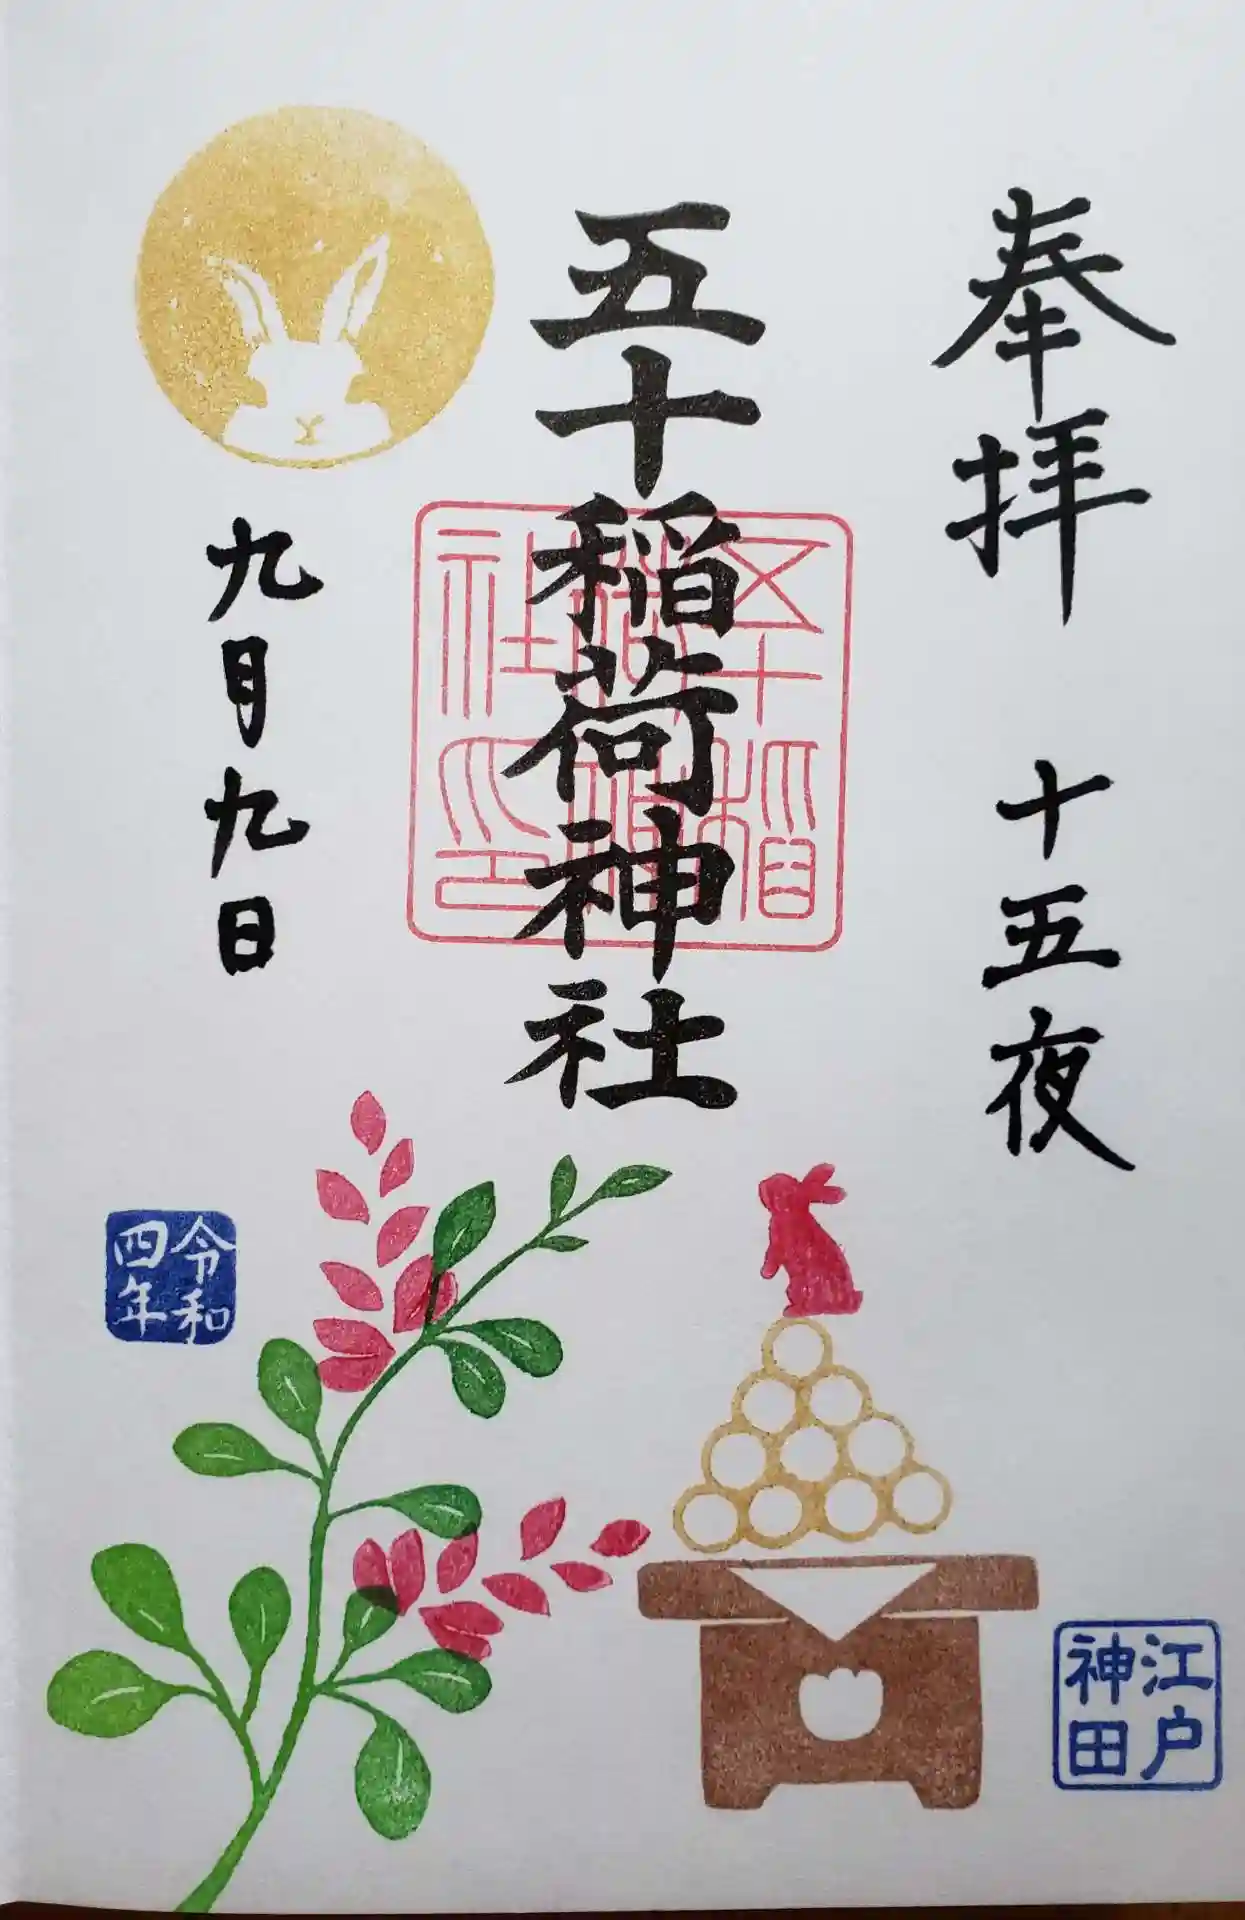 奉拝
十五夜
五十稲荷神社
五十稲荷神社印
九月九日
令和
四年
江戸
神田